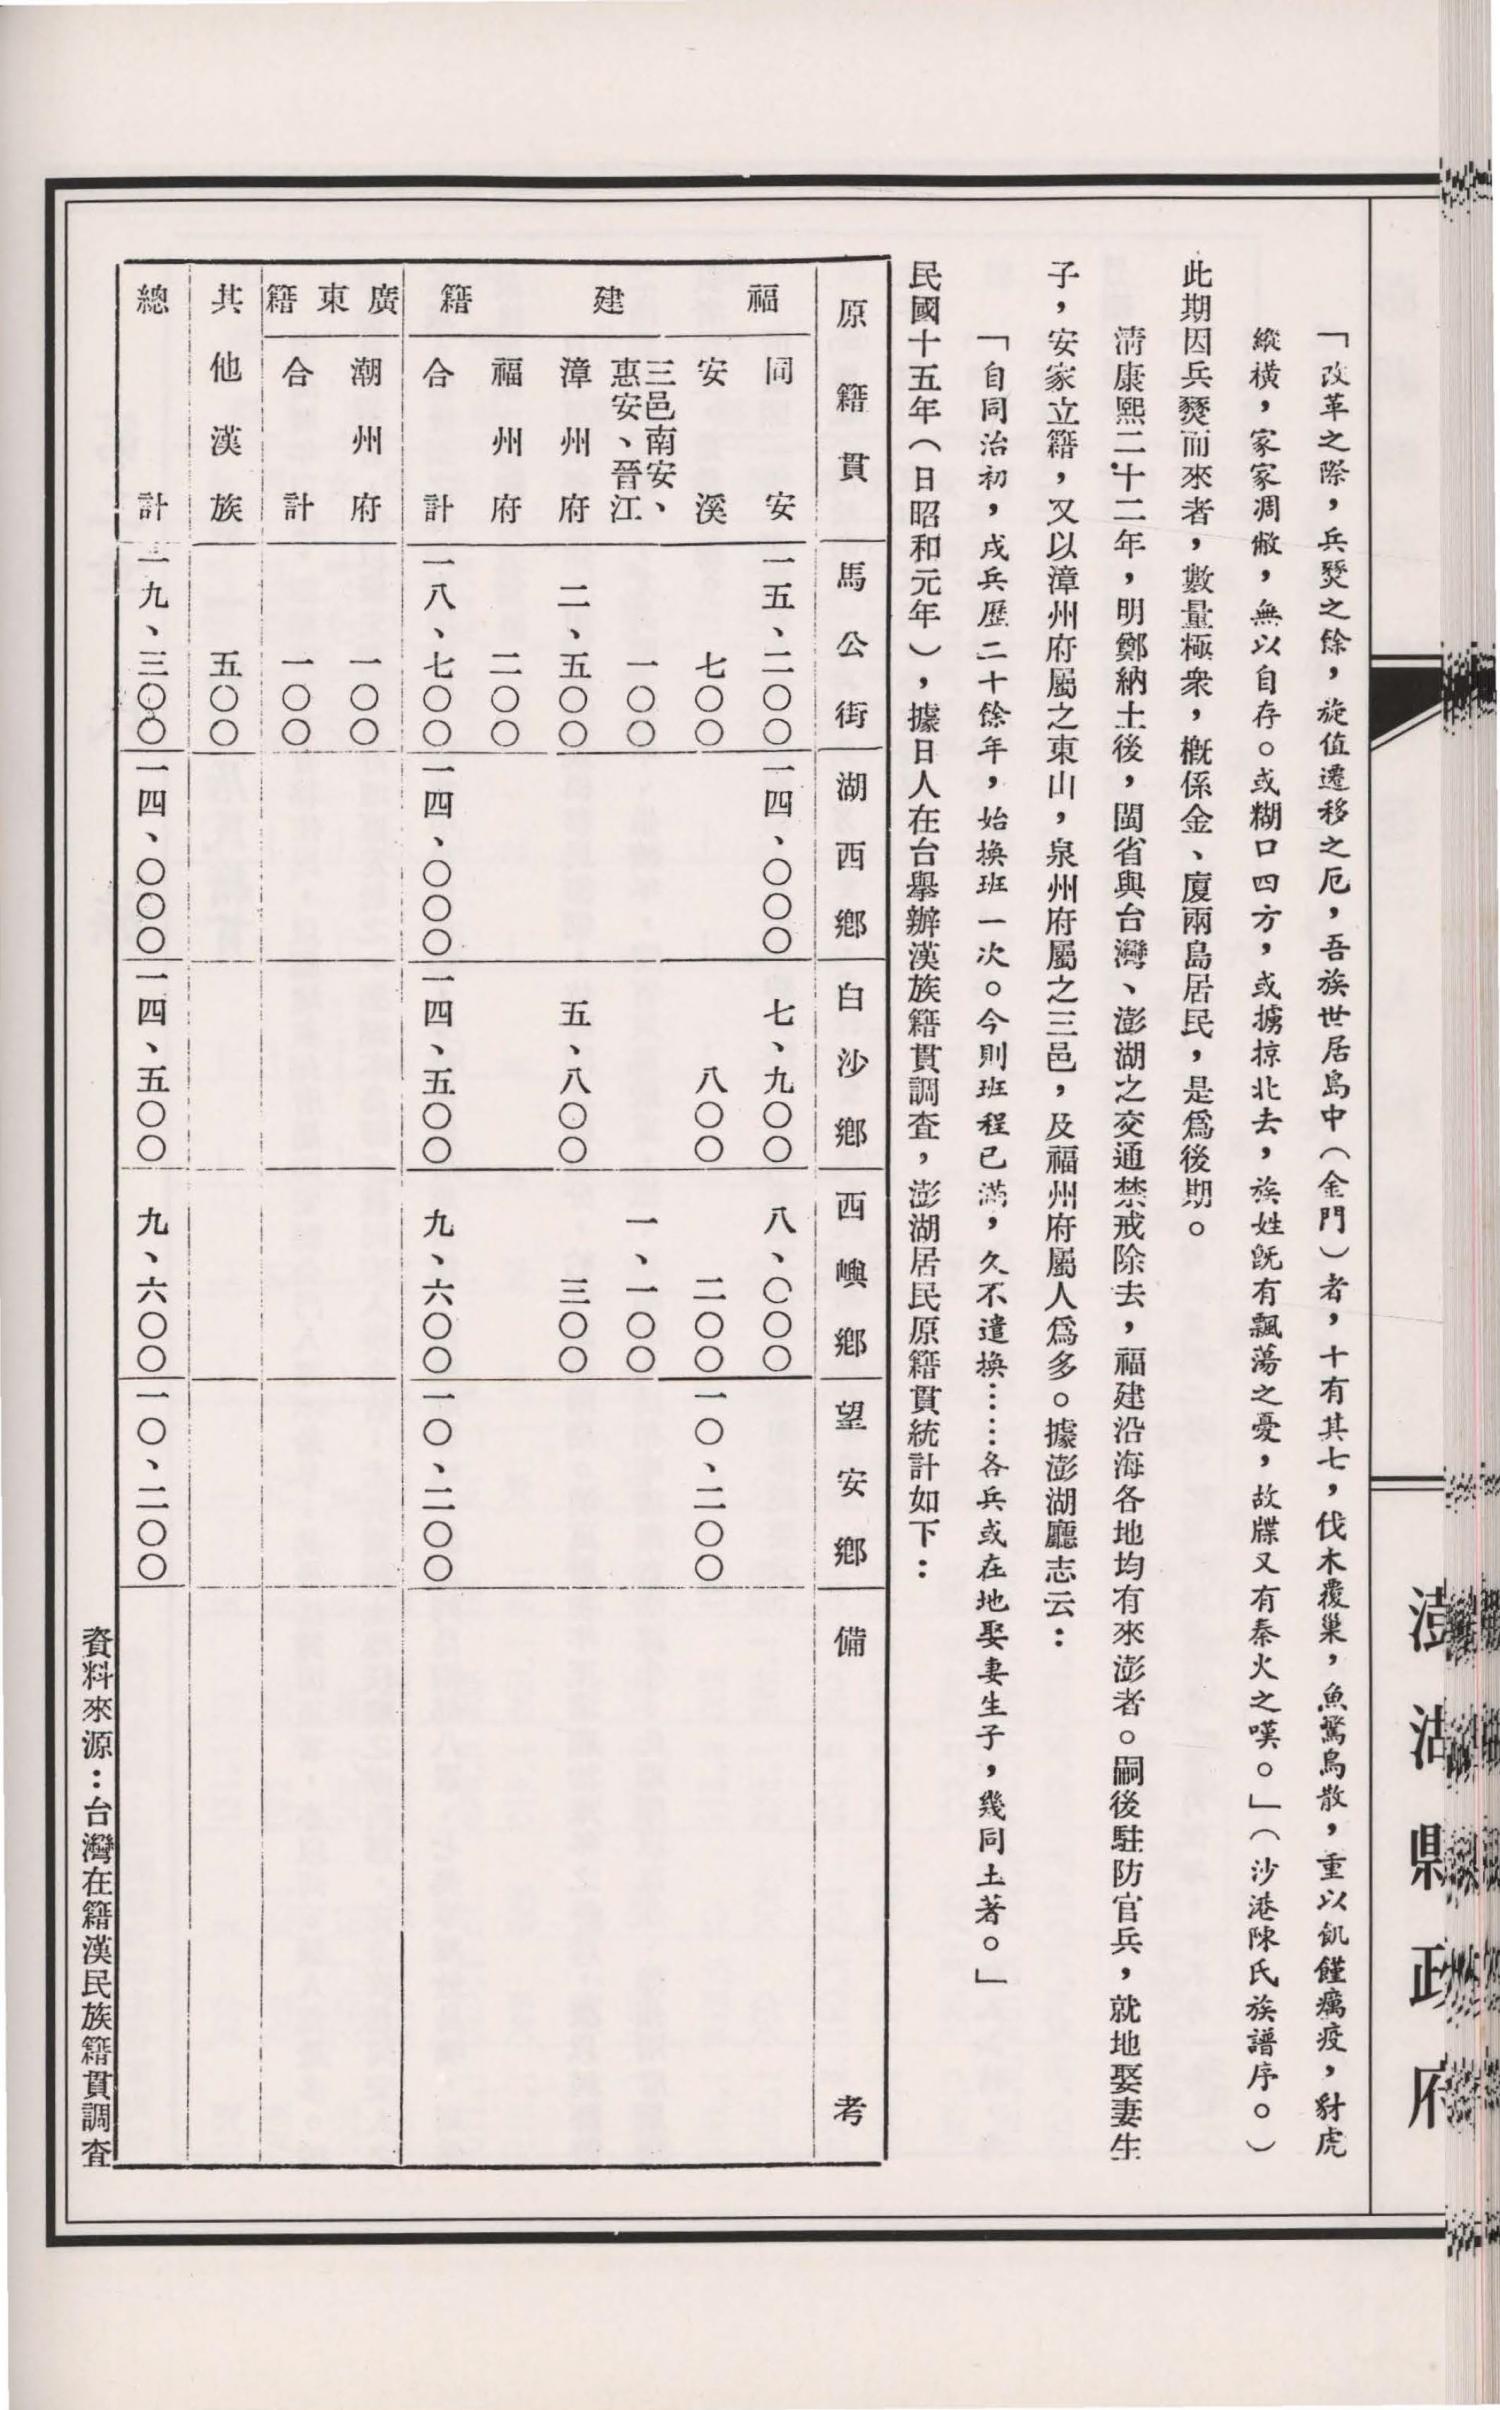 澎湖縣政府
「改革之際，兵燹之餘，旋值遷移之厄，吾族世居島中（金門）者，十有其七，伐木覆巢，魚驚鳥散，重以飢饉癘疫，豺虎
縱橫，家家凋敝，無以自存。或糊口四方，或擄掠北去，族姓旣有飄蕩之憂，故牒又有秦火之嘆。」（沙港陳氏族譜序。）
此期因兵燹而來者，數量極衆，槪係金、廈兩島居民，是爲後期。
淸康熙二十二年，明鄭納土後，閩省與台灣、澎湖之交通禁戒除去，福建沿海各地均有來澎者。嗣後駐防官兵，就地娶妻生
子，安家立籍，又以漳州府屬之東山，泉州府屬之三邑，及福州府屬人爲多。據澎湖廳志云：
「自同治初，戌兵歷二十餘年，始換班一次。今則班程已滿，久不遣換……各兵或在地娶妻生子，幾同土著。」
民國十五年（日昭和元年），據日人在台舉辦漢族籍貫調査，澎湖居民原籍貫統計如下：
原籍貫 馬公街 湖西鄉 白沙鄉 西嶼鄉 望安鄉 備考
福建籍
同安 一五、二〇〇 一四、〇〇〇 七、九〇〇 八、〇〇〇
安溪 七〇〇 八〇〇 二〇〇 一〇、二〇〇
三邑南安、惠安、晉江 一〇〇 一、一〇〇
漳州府 二、五〇〇 五、八〇〇 三〇〇
福州府 二〇〇
合計 一八、七〇〇 一四、〇〇〇 一四、五〇〇 九、六〇〇 一〇、二〇〇
廣東籍
潮州府 一〇〇
合計 一〇〇
其他漢族 五〇〇
總計 一九、三〇〇 一四、〇〇〇 一四、五〇〇 九、六〇〇 一〇、二〇〇
資料來源：台灣在籍漢民族籍貫調査